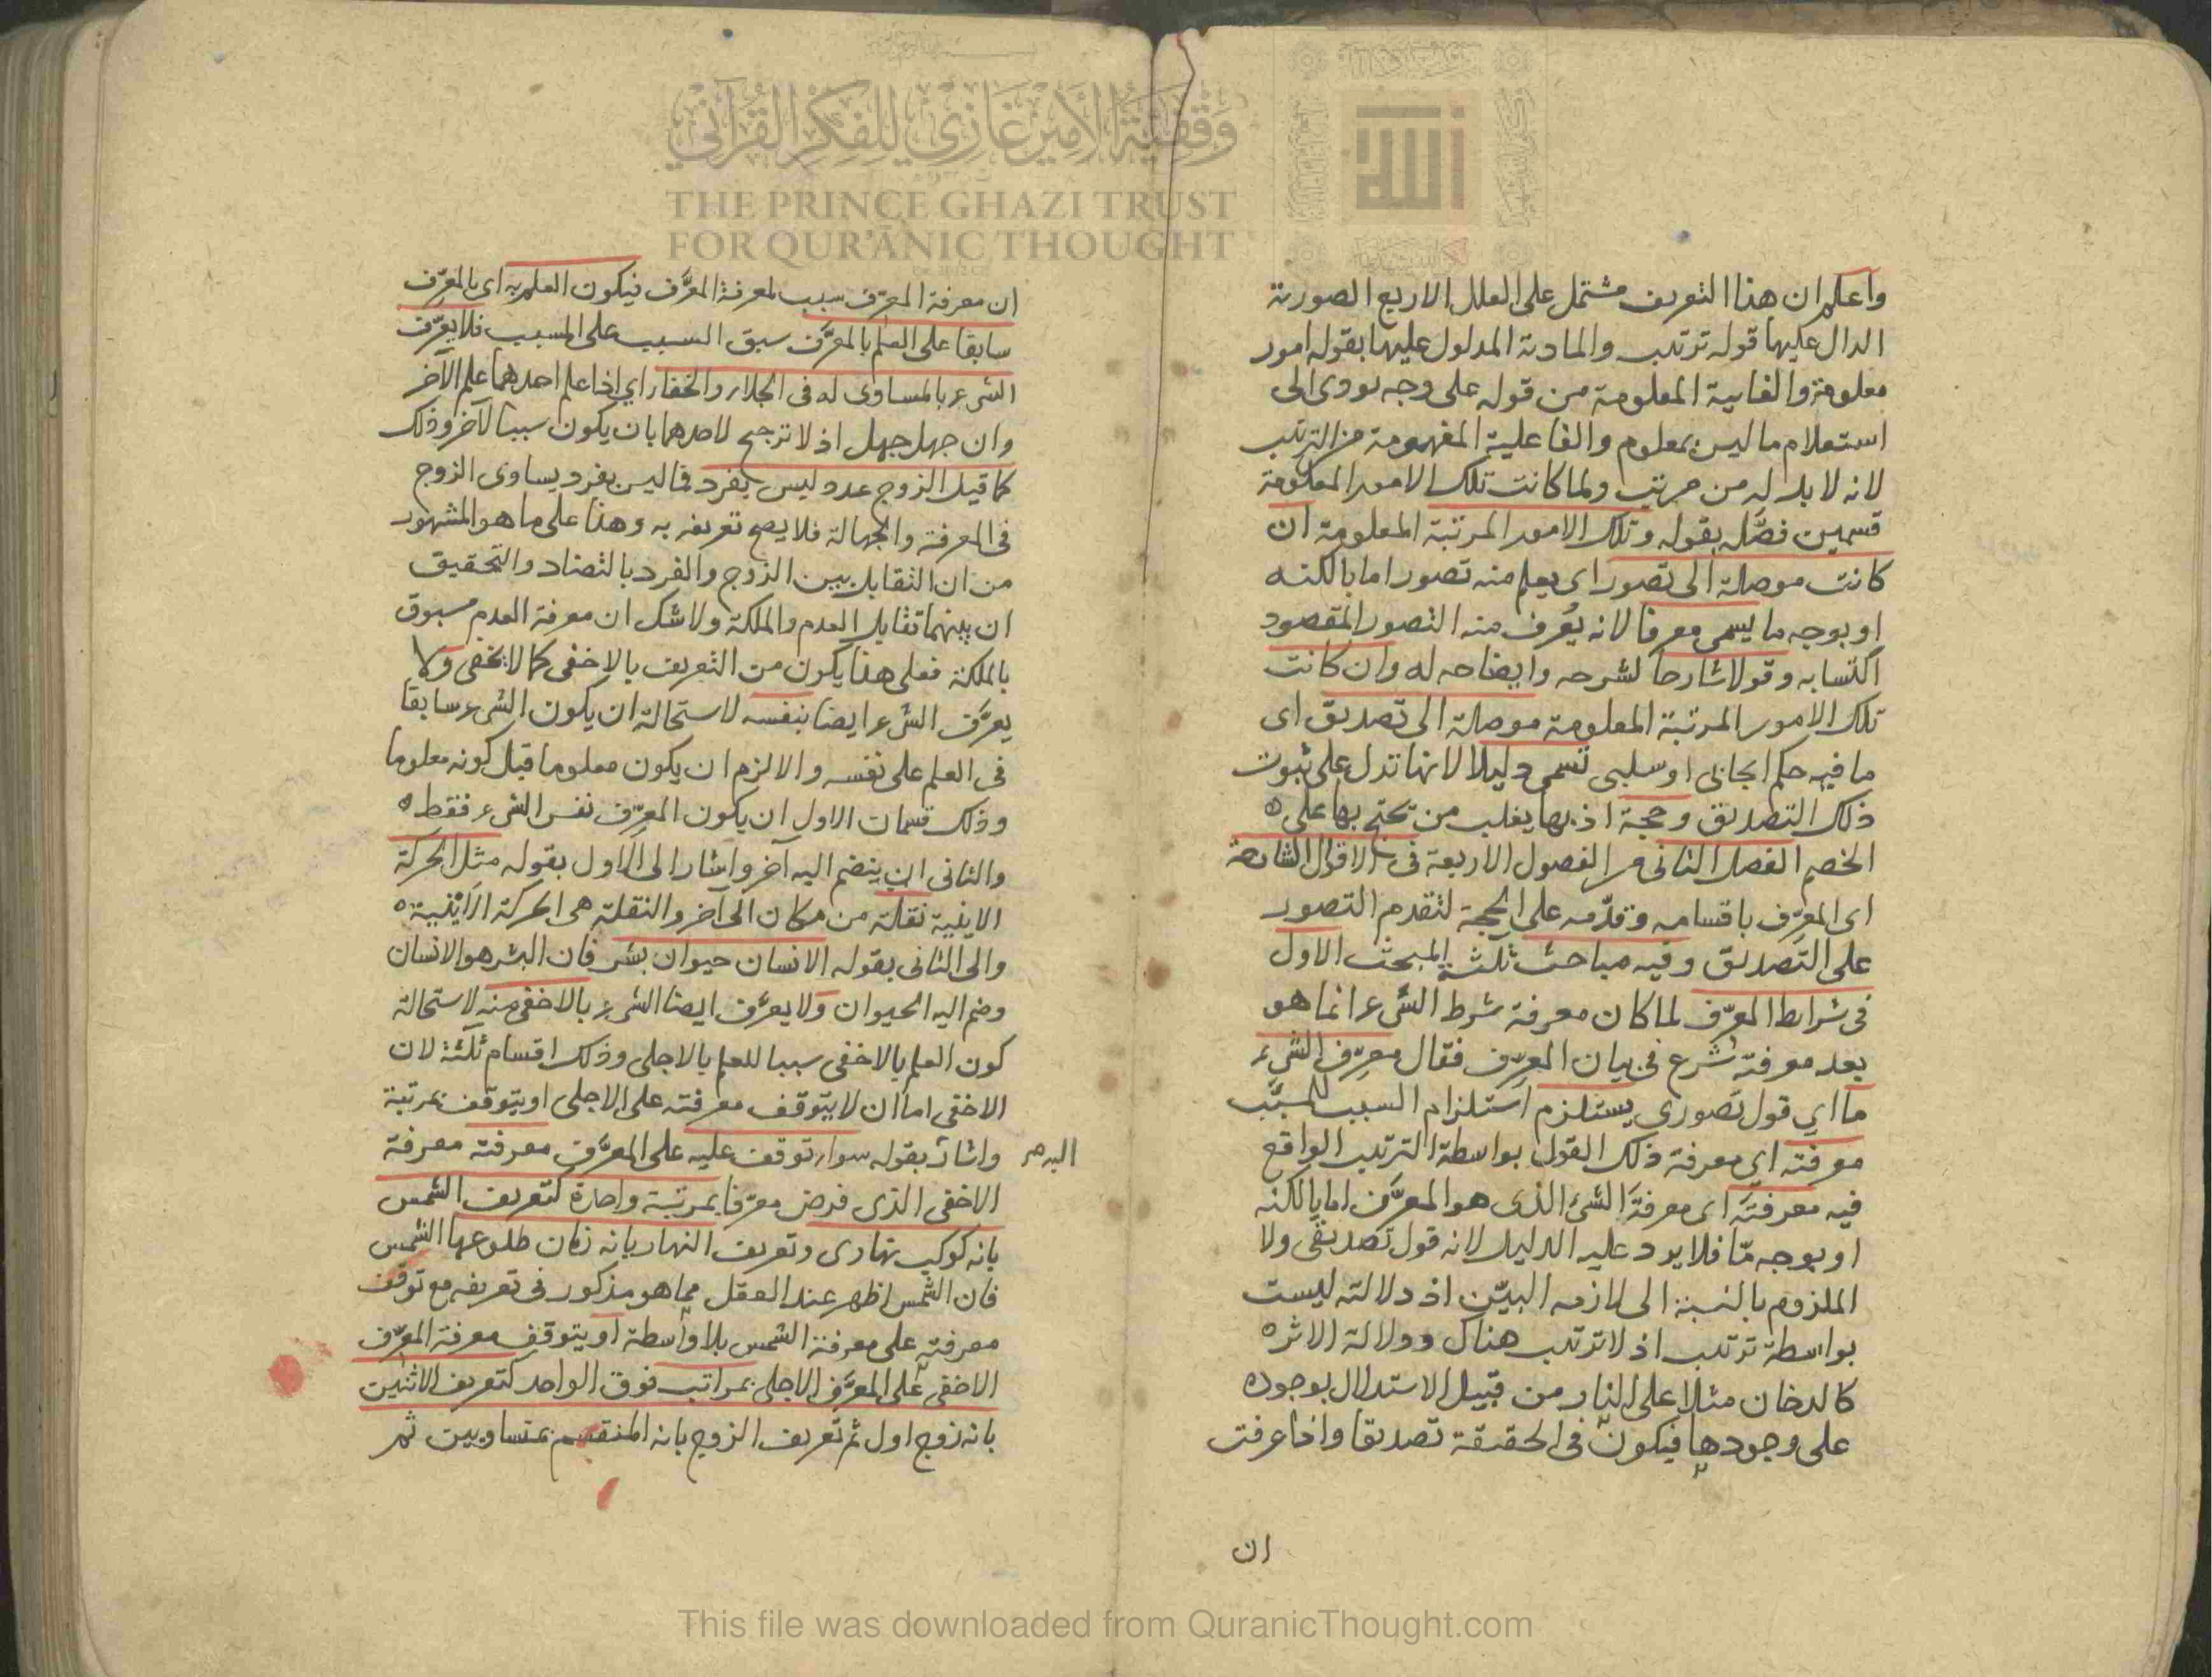 واعلم ان هذا التعريف مشتمل على العلل الاربع الصورية
الدال عليها قوله ترتيب والمادية المدلول عليها بقوله امور
معلومة والغايية المعلومة من قوله على وجه يودى الى
استعلام ما ليس بمعلوم والفاعلية المفهومة من الترتيب
لانه لا بد له من مرتب ولما كانت تلك الامور المعلومة
قسمين فصّله بقوله وتلك الامور المرتبة المعلومة ان
كانت موصلة الى تصور اى يعلم منه تصور اما بالكنه
او بوجه ما يسمى معرفا لانه يُعرف منه التصور المقصود
اكتسابه وقولا شارحا لشرحه وايضاحه له وان كانت
تلك الامور المرتبة المعلومة موصلة الى تصديق اى
ما فيه حكم ايجابى او سلبى تسمى دليلا لانها تدل على ثبوت
ذلك التصديق وحجة اذ بها يغلب من تحتج بها على
الخصم الفصل الثانى من الفصول الاربعة فى الاقوال الشارحة
اى المعرّف باقسامه وقدّمه على الحجة لتقدم التصور
على التصديق وفيه مباحث ثلثة المبحث الاول
فى شرايط المعرّف لما كان معرفة شرط الشىء انما هو
بعد معرفته شرع فى بيان المعرِّف فقال معرِّف الشىء
ما اي قول تصورى يستلزم استلزام السبب للمسبَّب
معرفته اي معرفة ذلك القول بواسطة الترتيب الواقع
فيه معرفتَه اى معرفةَ الشئ الذى هو المعرَّف اما بالكنه
او بوجه مّا فلا يرد عليه الدليل لانه قول تصديقى ولا
الملزوم بالنسبة الى لازمه البيّن اذ دلالته ليست
بواسطة ترتيب اذ لا ترتيب هناك ودلالة الاثر
كالدخان مثلا على النار من قبيل الاستدلال بوجوده
على وجودها فيكون فى الحقيقة تصديقا واذا عرفت
ان
ان معرفة المعرِّف سبب لمعرفة المعرَّف فيكون العلم به اى بالمعرِّف
سابقا على العلم بالمعرَّف سبق السبب على المسبب فلا يعرّف
الشىء بالمساوى له فى الجلاء والخفاء اي اذا علم احدهما علم الآخر
وان جهل جهل اذ لا ترجيح لاحدهما بان يكون سببا لآخر وذلك
كما قيل الزوج عدد ليس بفرد فما ليس بفرد يساوى الزوج
فى المعرفة والجهالة فلا يصح تعريفه به وهذا على ما هو المشهور
من ان التقابل بين الزوج والفرد بالتضاد والتحقيق
ان بينهما تقابل العدم والملكة ولا شك ان معرفة العدم مسبوق
بالملكة فعلى هذا يكون من التعريف بالاخفى كما لا يخفى ولا
يعرَّف الشىء ايضا بنفسه لاستحالة ان يكون الشىء سابقا
فى العلم على نفسه والا لزم ان يكون معلوما قبل كونه معلوما
وذلك قسمان الاول ان يكون المعرّف نفس الشىء فقط
والثانى ان ينضم اليه آخر واشار الى الاول بقوله مثل الحركة
الاينية نقلة من مكان الى آخر والنقلة هى الحركة الاَينية
والى الثانى بقوله الانسان حيوان بشر فان البشر هو الانسان
وضم اليه الحيوان ولا يعرَّف ايضا الشىء بالاخفى منه لاستحالة
كون العلم بالاخفى سببا للعلم بالاجلى وذلك اقسام ثلثة لان
الاخفى اما ان لا يتوقف معرفته على الاجلى او يتوقف بمرتبة
واشار بقوله سواء توقف عليه على المعرَّف معرفته معرفة
الاخفى الذى فرض معرّفا بمرتبة واحدة كتعريف الشمس
بانه كوكب نهارى وتعريف النهار بانه زمان طلوعها الشمس
فان الشمس اظهر عند العقل مما هو مذكور فى تعريفه مع توقف
معرفته على معرفة الشمس بلا واسطة او يتوقف معرفة المعرّف
الاخفى على المعرَّف الاجلى بمراتب فوق الواحد كتعريف الاثنين
بانه زوج اول ثم تعريف الزوج بانه المنقسم بمتساويين ثم
وقفية الأمير غازي للفكر القرآني
THE PRINCE GHAZI TRUST
FOR QUR'ĀNIC THOUGHT
الله
This file was downloaded from QuranicThought.com